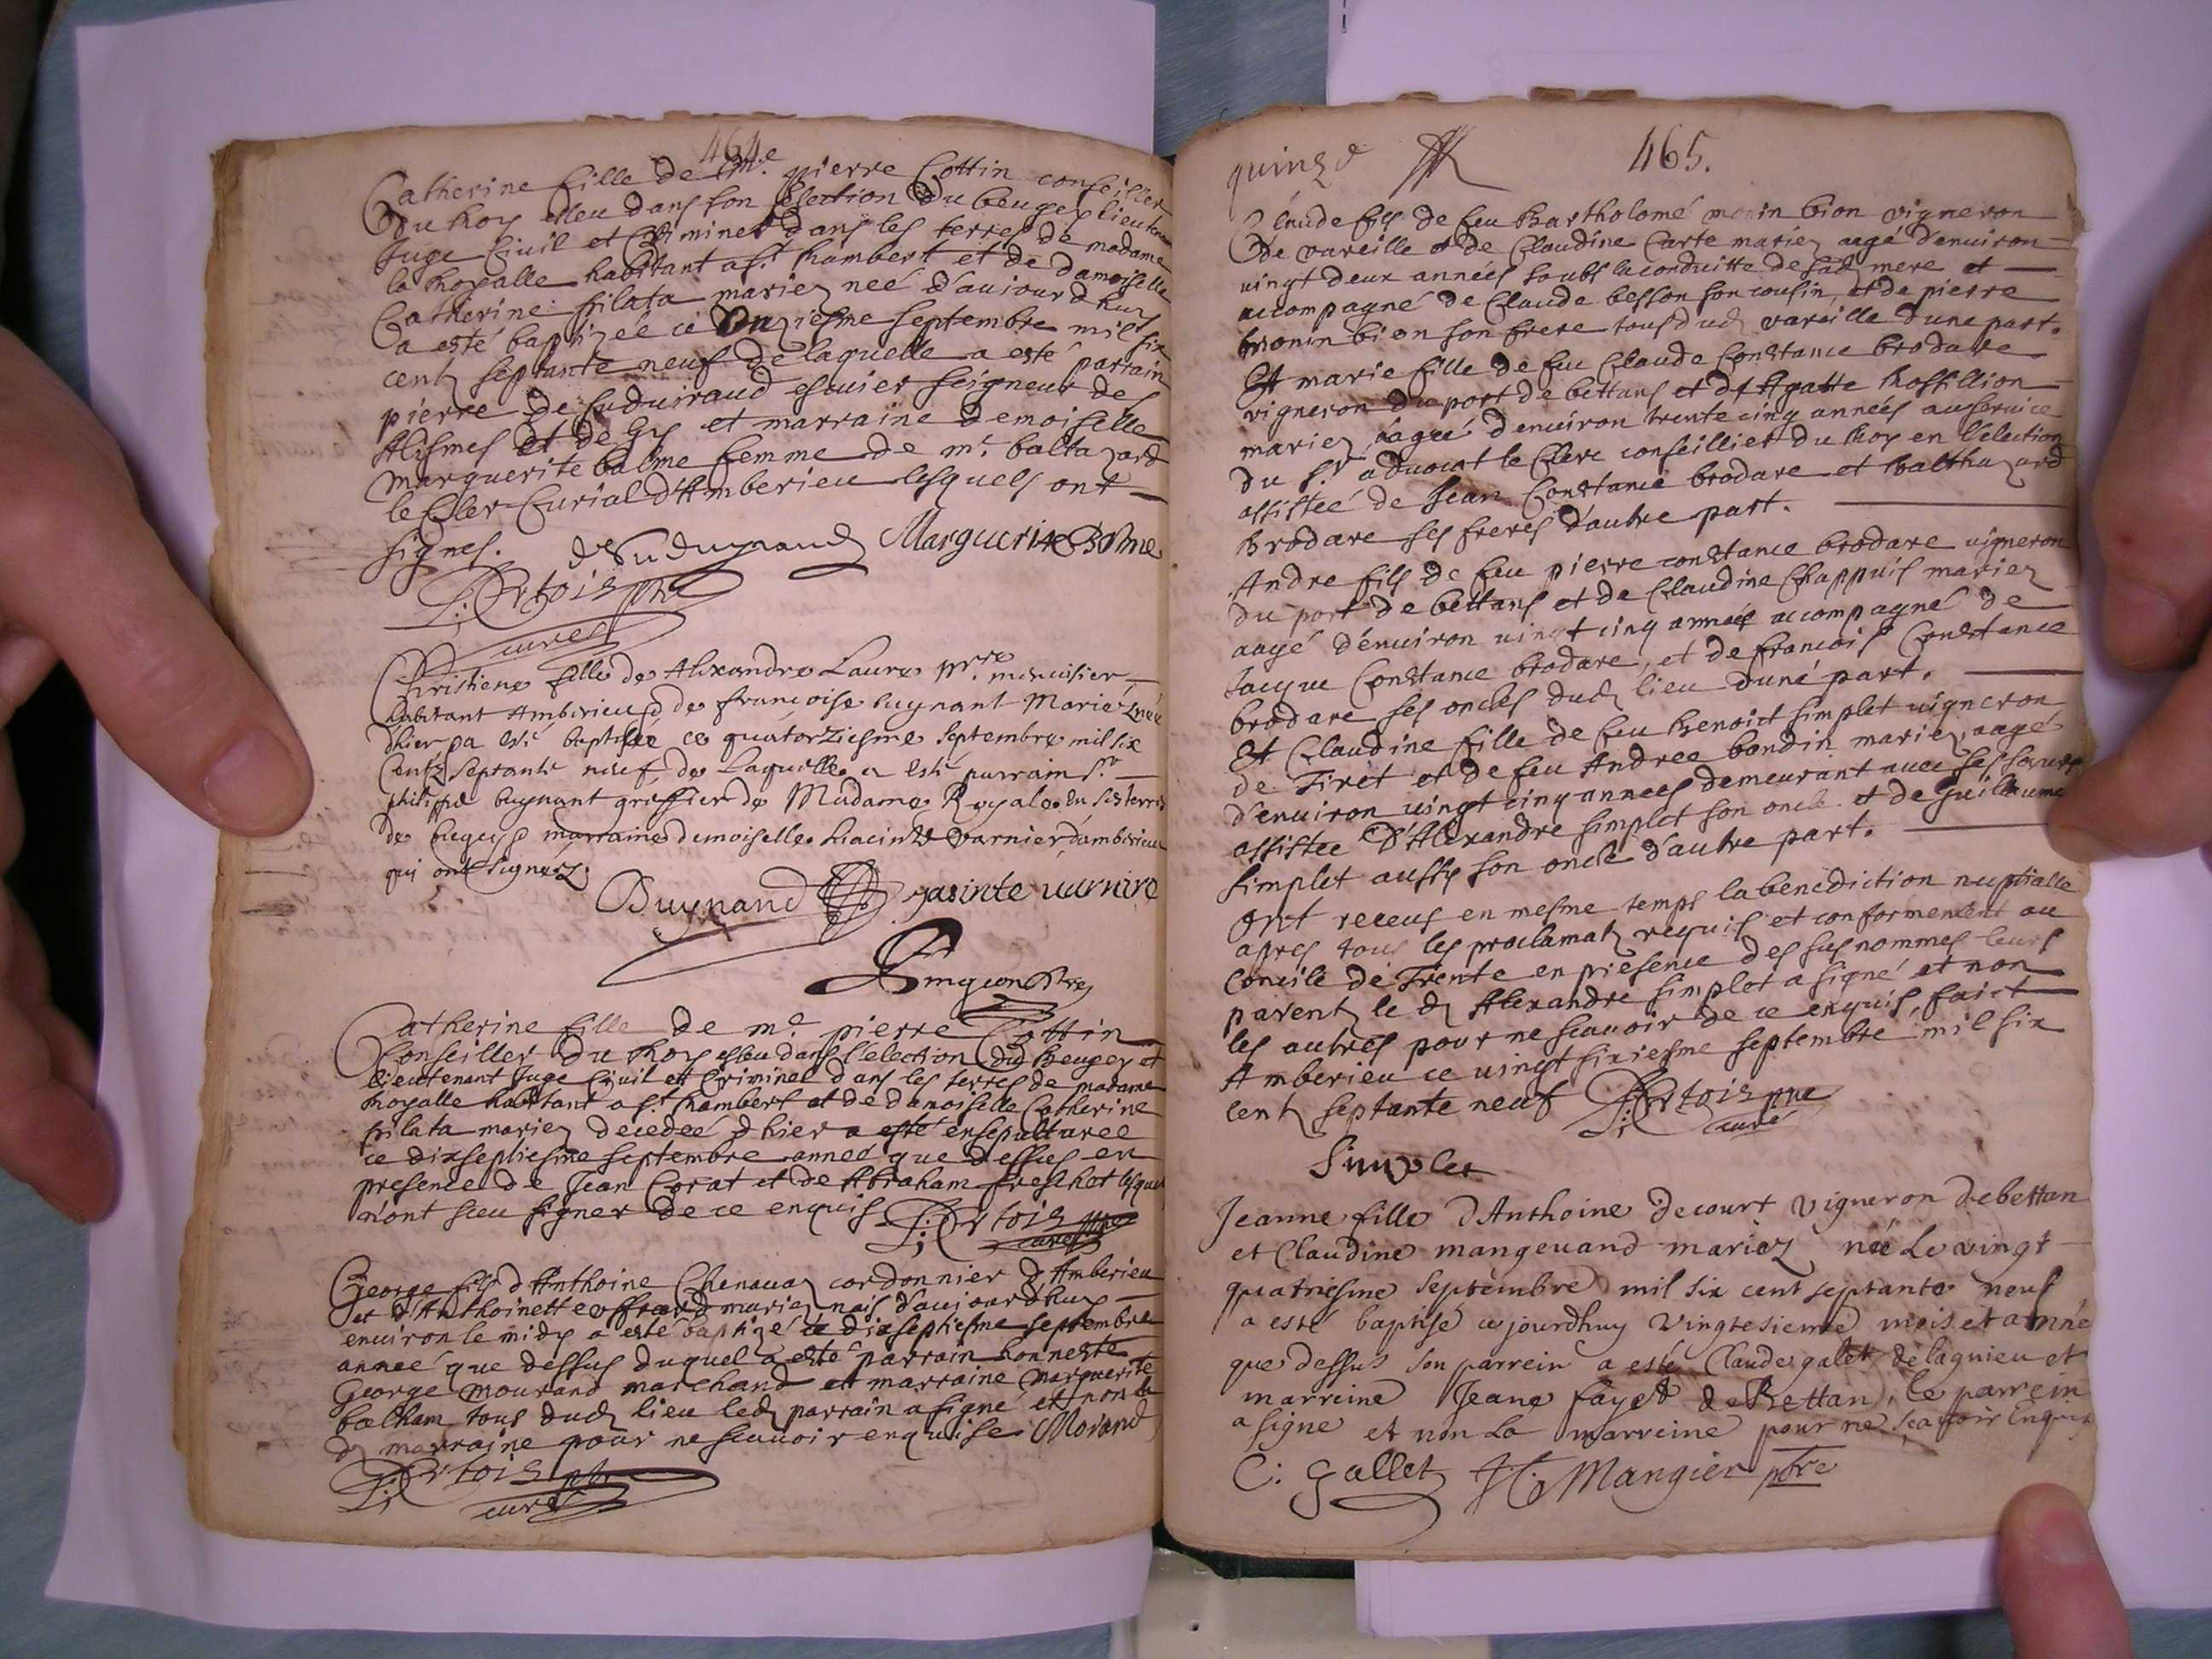 464
Catherine fille de Me. pierre Cottin conseiller
du Roy esleu dans son eslection du beugey lieutenant
Juge Civil et Criminel dans les terres de madame
la Royalle habitant a st. Rambert et de damoiselle
Catherine filata mariez neé d'aujourdhuy
a esté baptizée ce onziesme septembre mil six
centz septante neuf de laquelle a esté parrain
pierre de suduiraud escuier seigneur des
Alismes et de Gy et marraine demoiselle
marguerite balme femme de mr. baltazard
le Cler Curial d'Amberieu lesquels ont
signes. deSuduyraud Marguerite Balme
curé
Christiene fille de Alexandre Laure mre. menuisier
habitant Amberieu & de françoise buynant Mariéz née
dhier, a esté baptisée ce quatorziesme Septembre mil six
Centz Septante neuf, de Laquelle a esté parrain Sr.
philippe buynant greffier de Madame Royale en ses terres
de bugey & marraine demoiselle hiacinte Varnier d'amberieu
qui ont signéz.
Buynand gasinte varnire
Catherine fille de me. pierre Cottin
Conseiller du Roy esleu dans l'election du beugey et
lieutenant Juge Civil et Criminel dans les terres de madame
Royalle habitant a st. Rambert et de damoiselle Catherine
filata mariez decedeé d hier a esté ensepulturee
ce dixseptiesme septembre anneé que dessus en
presence de Jean Corat et de Abraham freschot lesquels
n'ont sceu signer de ce enquis
curé
George fils d'Anthoine Chenavaz cordonnier d'Amberieu
et d'Anthoinette offrard mariez nais d'aujourdhuy
environ le midy a esté baptizé ce dixseptiesme septembre
anneé que dessus duquel a esté parrain honneste
George Mourand marchand et marraine marguerite
balham tous dudt lieu ledt parrain a signé et non la
dt marraine pour ne scauoir enquise Morand
curé
quinze 465.
Claude fils de feu Bartholomé monin bion vigneron
de vareille et de Claudine Carte mariez aagé denuiron
uingt deux années soubs la conduitte de sadt mere et
accompagné de Claude besson son cousin, et de pierre
monin bion son frere tous dudt vareille d'une part.
Et marie fille de feu Claude Constance brodare
vigneron du port de bettans et de Agatte Rossillion
mariez aageé denuiron trente cinq années au seruice
du sr. aduocat le Clerc conseillier du Roy en l'election
assisteé de Jean Constance brodare et balthazard
Brodare ses freres d'autre part.
Andre fils de feu pierre constance brodare uigneron
du port de bettans et de Claudine Chappuis mariez
aagé d'enuiron uingt cinq annéés accompagné de
Jacque Constance brodare, et de francois Constance
brodare ses oncles dudt lieu duné part.
Et Claudine fille de feu Benoict simplet uigneron
de Tiret et de feu Andree bondin mariez, aagé
d'enuiron uingt cinq annees demeurant auec ses soeurs
assistee d'Alexandre simplet son oncle et de Guillaume
simplet aussy son oncle d'autre part.
ont receus en mesme temps la benediction nuptialle
apres tous les proclamatz requis et conformement au
Concile de Trente en presence des susnommes leurs
parentz le dt Alexandre simplet a signé et non
les autres pour ne scauoir de ce enquis, faict
Amberieu ce uingt sixiesme septembre mil six
centz septante neuf
curé
Simplet
Jeanne fille D'Anthoine decourt Vigneron de bettan
et Claudine mangeuand mariez née Le vingt
quatriesme Septembre mil six cent septante neuf
a esté baptisé ce jourdhuy Vingtesieme mois et année
que dessus son parrein a esté Claude galet de lagnieu et
marreine Jeane fayet de Bettan, le parrein
a signe et non la marreine pour ne scavoir Enquis
C: gallet Mangier pbre